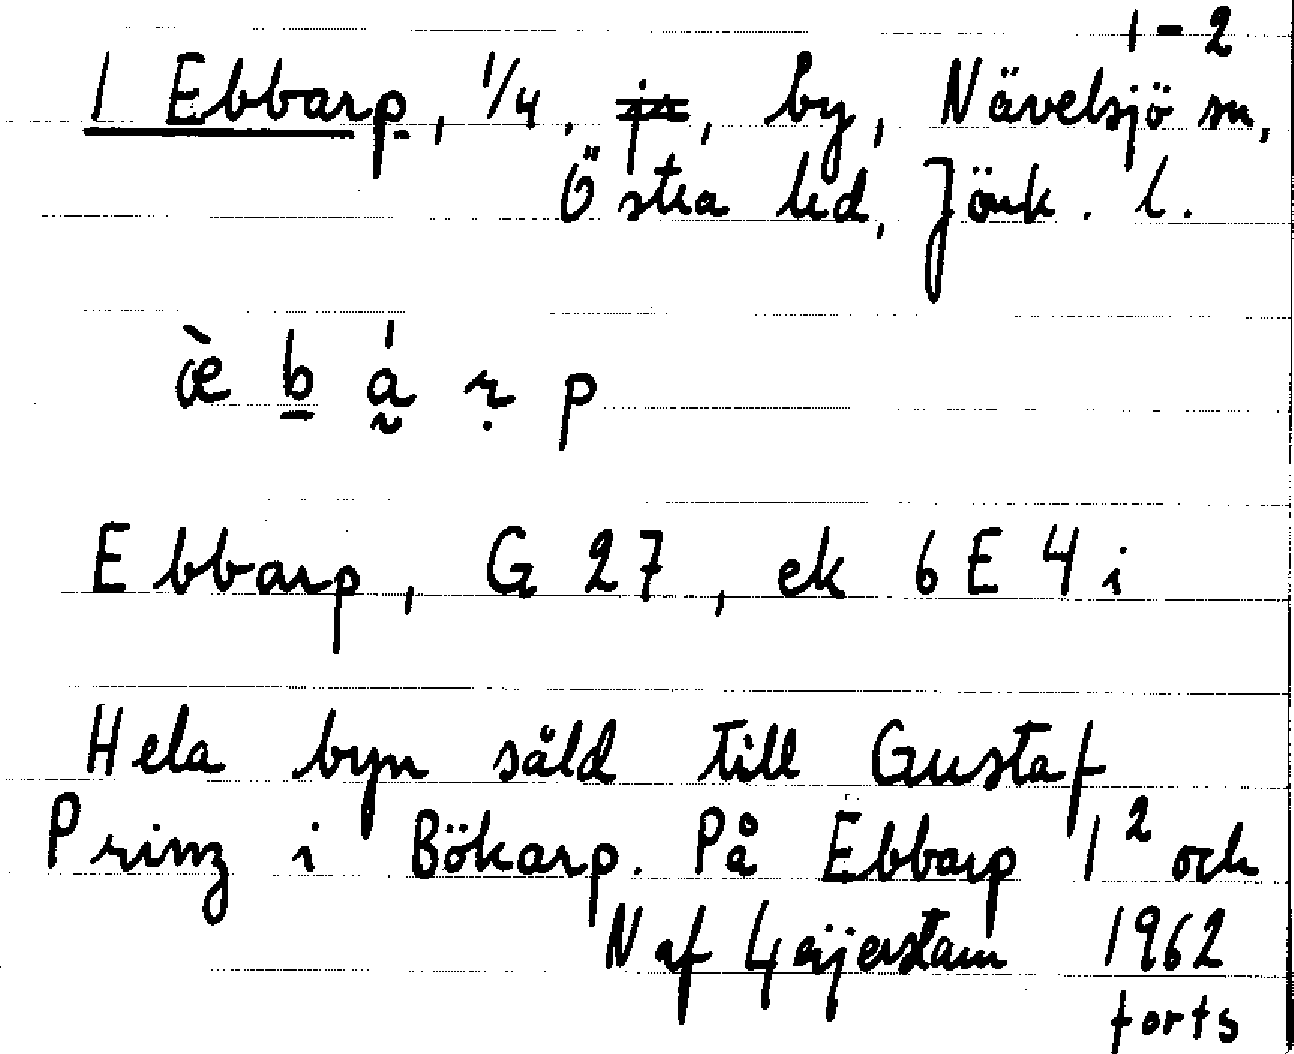 1-2
1 Ebbarp, 1/4, by, Nävelsjö sn,
Östra hd, Jönk. l.
æ̀ b̲ á̰ ṛ p
Ebbarp, G 27, ek 6 E 4 i
Hela byn såld till Gustaf
Prinz i Bökarp. På Ebbarp 1² och
N af Geijerstam 1962
forts